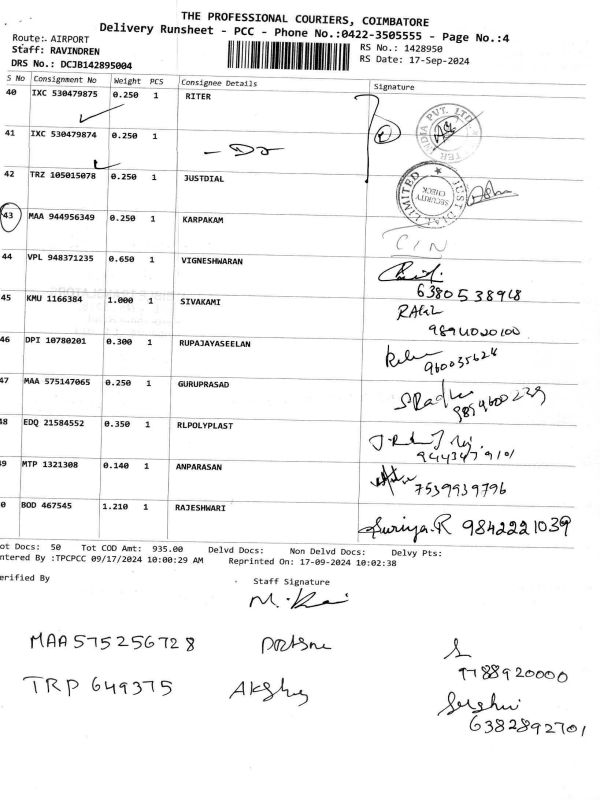 THE PROFESSIONAL COURIERS, COIMBATORE
Delivery Runsheet - PCC - Phone No.:0422-3505555 - Page No.:4
Route:- AIRPORT
Staff: RAVINDREN
RS No.: 1428950
DRS No.: DCJB142895004
RS Date: 17-Sep-2024
S No Consignment No Weight PCS Consignee Details Signature
40 IXC 530479875 0.250 1 RITER
41 IXC 530479874 0.250 1 - Do
42 TRZ 105015078 0.250 1 JUSTDIAL
JUST DIAL LIMITED
SECURITY CHECK
43 MAA 944956349 0.250 1 KARPAKAM
44 VPL 948371235 0.650 1 VIGNESHWARAN
6380538918
45 KMU 1166384 1.000 1 SIVAKAMI
9894020100
46 DPI 10780201 0.300 1 RUPAJAYASEELAN
960035628
47 MAA 575147065 0.250 1 GURUPRASAD
9894600239
48 EDQ 21584552 0.350 1 RLPOLYPLAST
49 MTP 1321308 0.140 1 ANPARASAN
7539939796
0 BOD 467545 1.210 1 RAJESHWARI
Suriya.R 9842221039
ot Docs: 50 Tot COD Amt: 935.00 Delvd Docs: Non Delvd Docs: Delvy Pts:
ntered By :TPCPCC 09/17/2024 10:00:29 AM Reprinted On: 17-09-2024 10:02:38
erified By Staff Signature
MAA 575256728
9788920000
TRP 649375 Akshy
6382892701